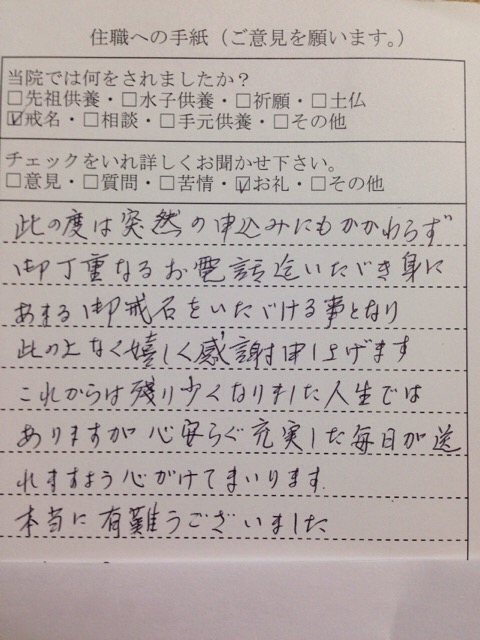 住職への手紙（ご意見を願います。）
当院では何をされましたか？
□先祖供養・□水子供養・□祈願・□土仏
☑戒名・□相談・□手元供養・□その他
チェックをいれ詳しくお聞かせ下さい。
□意見・□質問・□苦情・☑お礼・□その他
此の度は突然の申込みにもかかわらず
御丁重なるお電話迄いただき身に
あまる御戒名をいただける事となり
此の上なく嬉しく感謝申し上げます
これからは残り少くなりました人生では
ありますが心安らぐ充実した毎日が送
れますよう心がけてまいります
本当に有難うございました